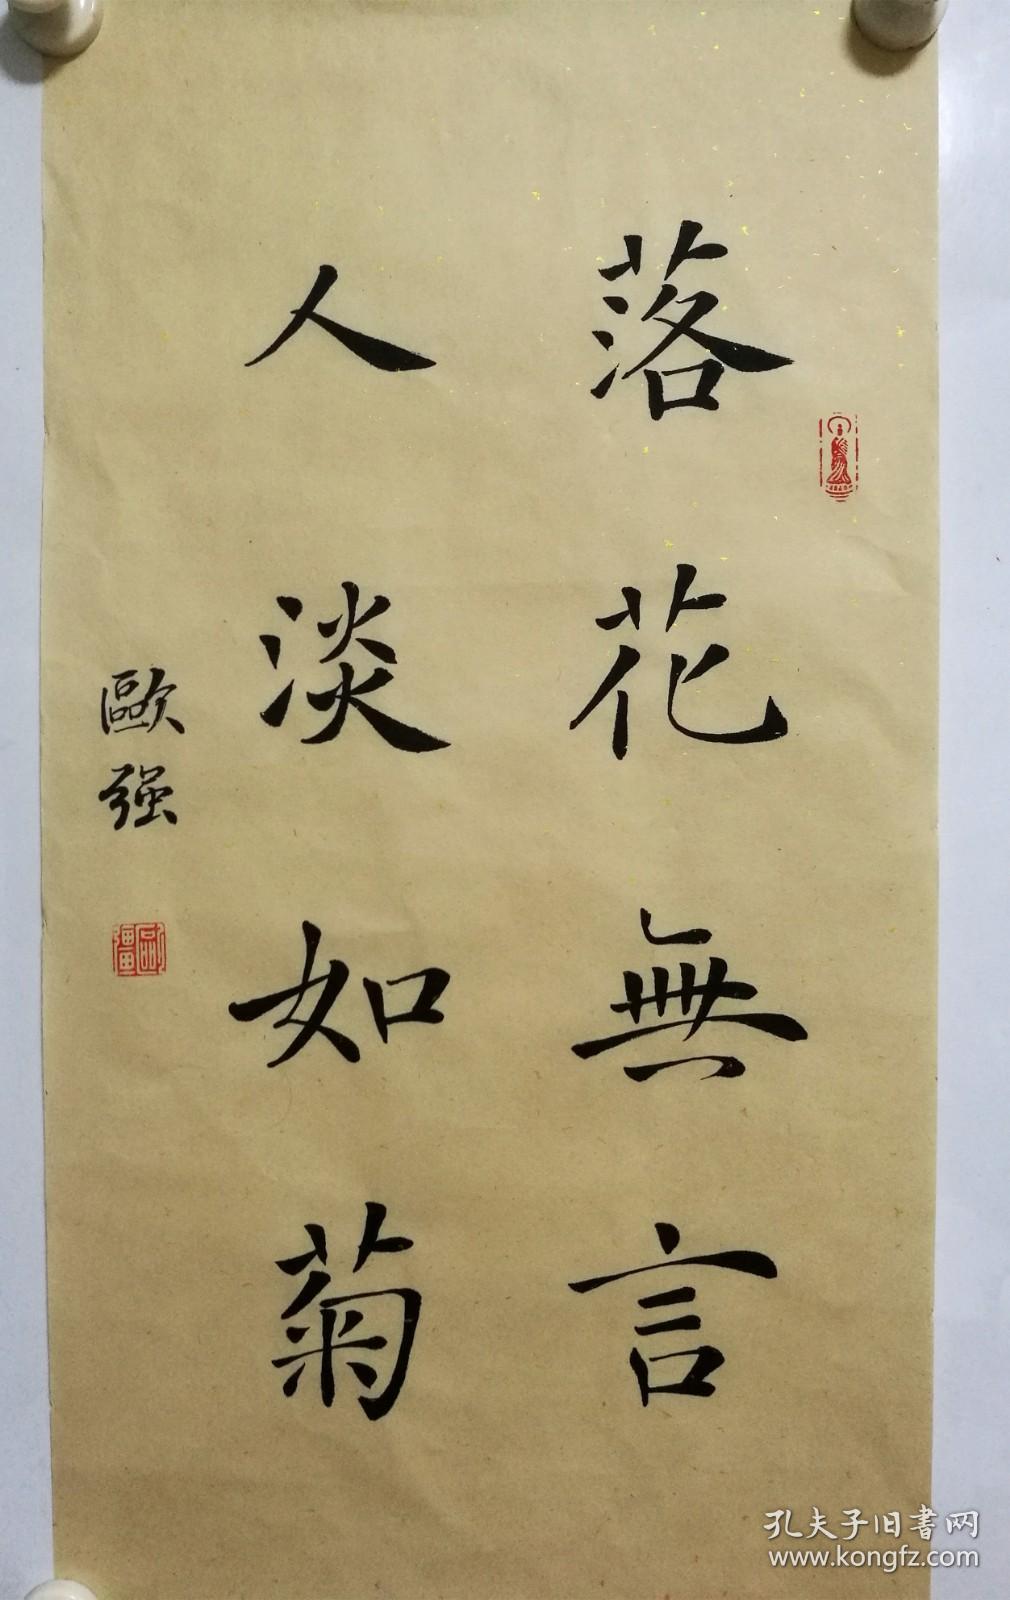 落花無言
人淡如菊
歐强
歐彊
孔夫子旧書网
www.kongfz.com